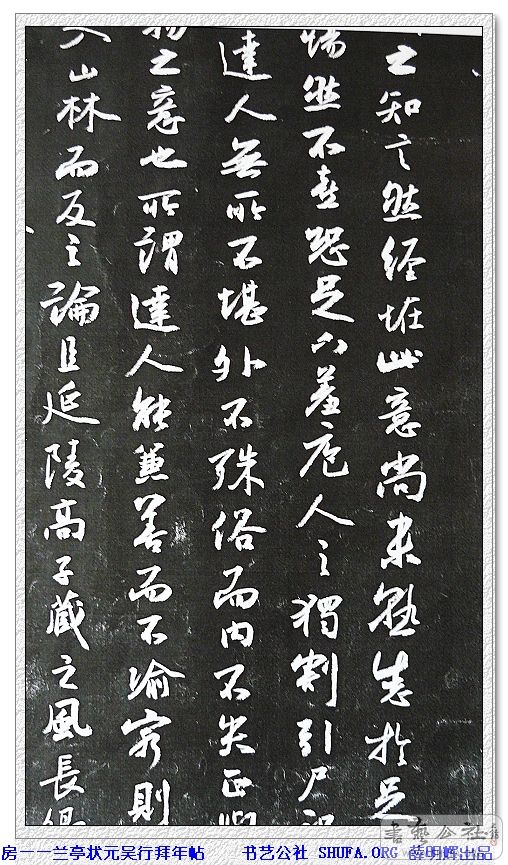 之知言然經恠此意尚未熟悉於足
惕然不喜恐足下羞庖人之獨割引尸祝
達人無所不堪外不殊俗而內不失正與
物之意也所謂達人能兼善而不渝窮則
入山林而反之論且延陵高子臧之風長
書藝公社
房一一兰亭状元吴行拜年帖 书艺公社 SHUFA.ORG 薛明辉出品